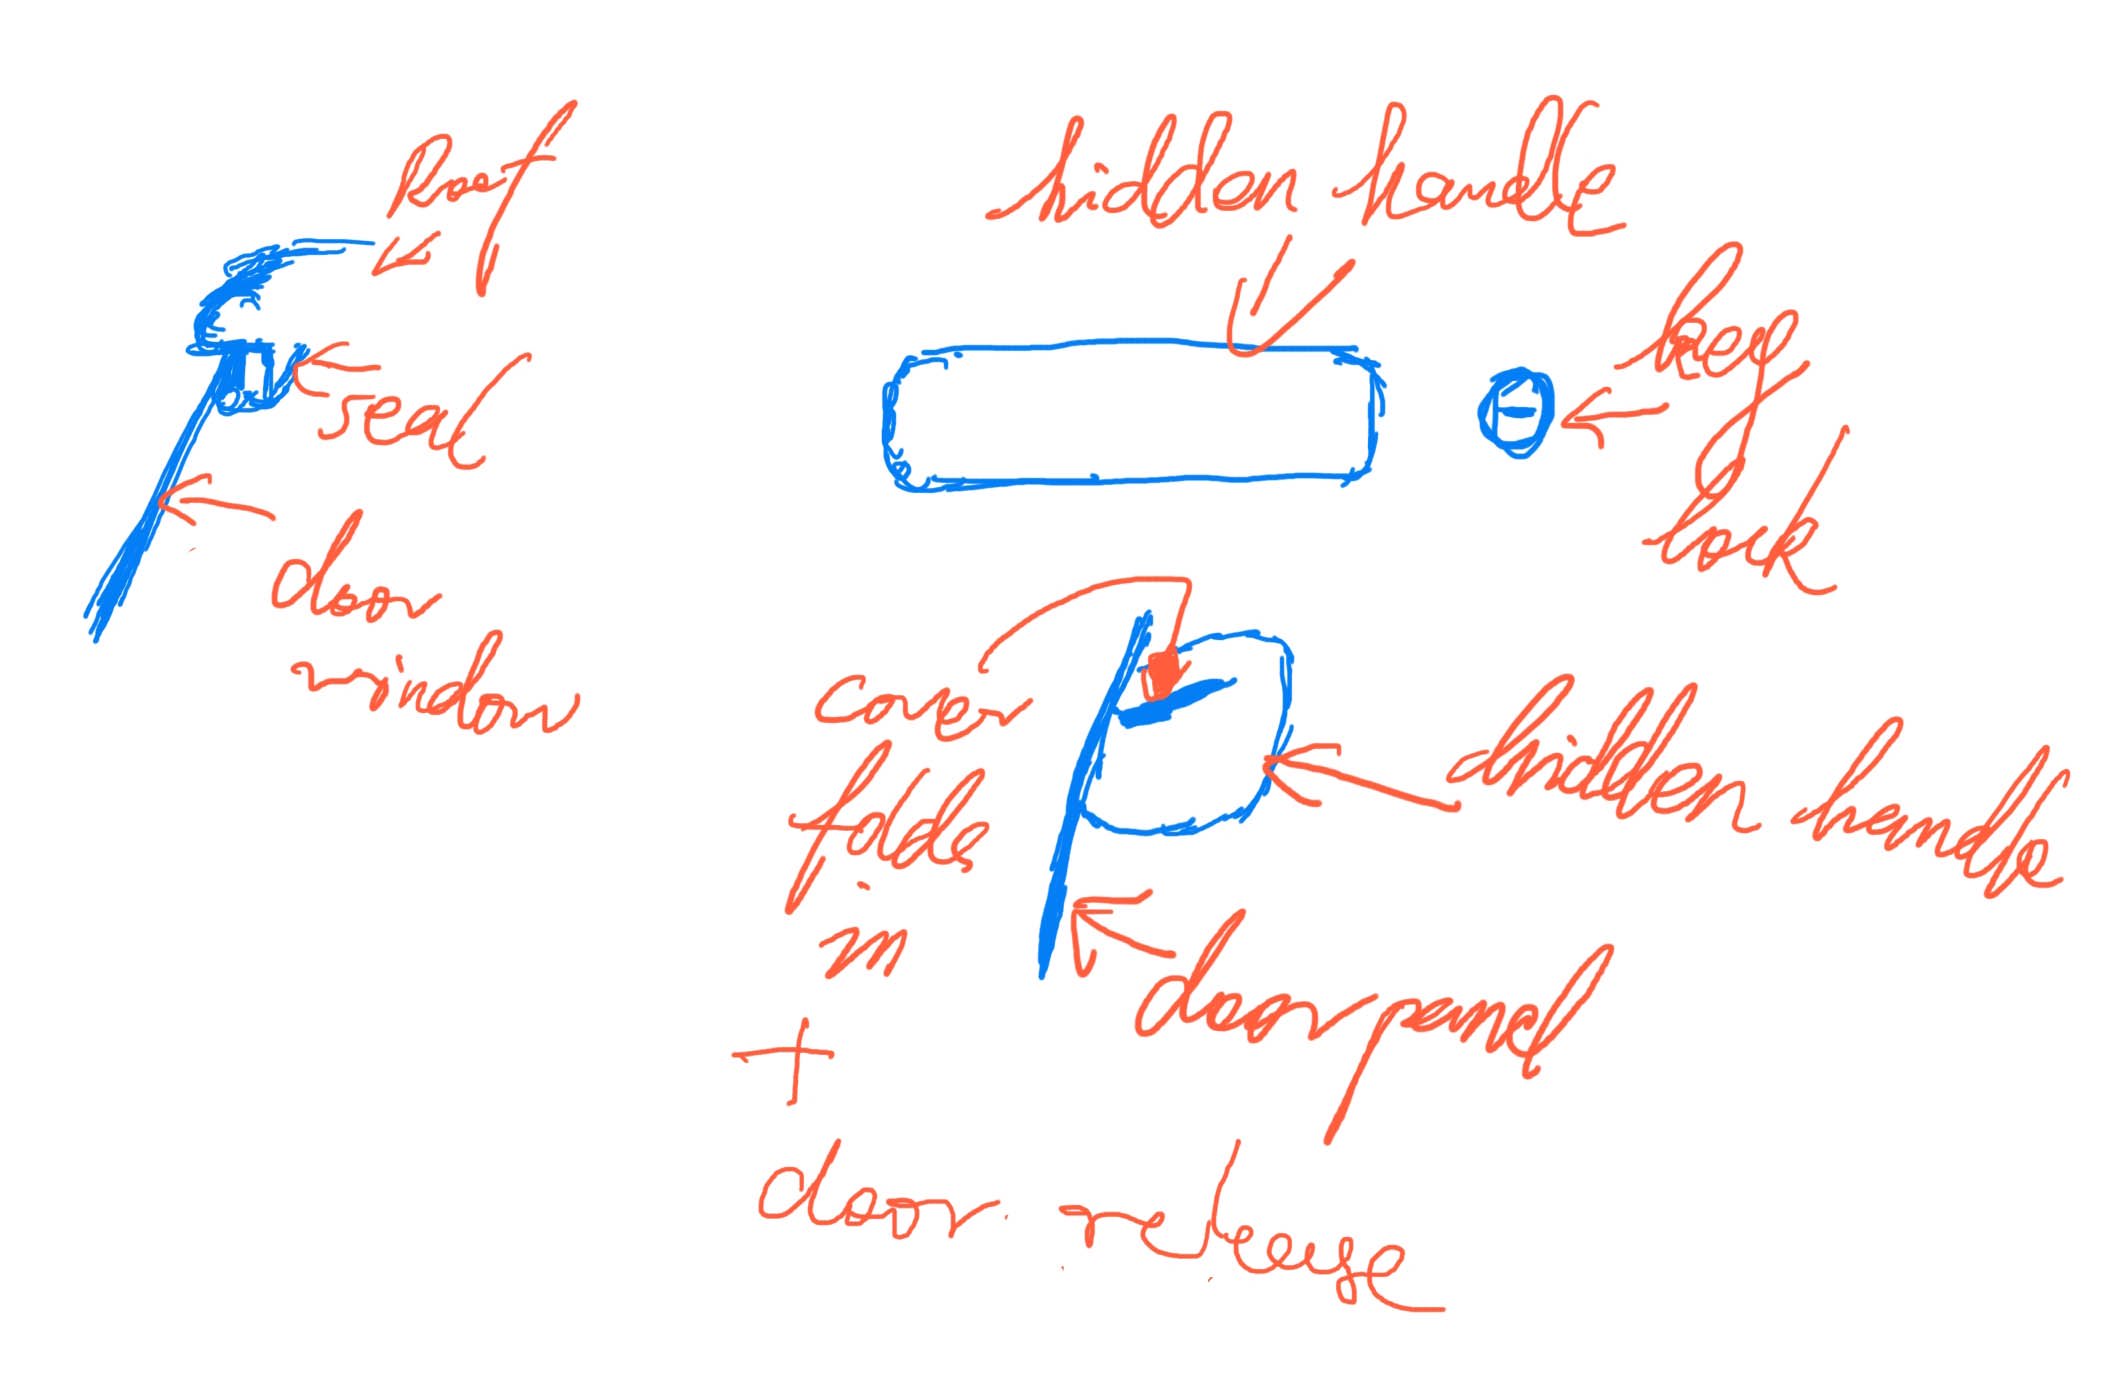 Roof
seal
door
window
hidden handle
key
lock
cover
folds
in
+
door release
hidden handle
door panel